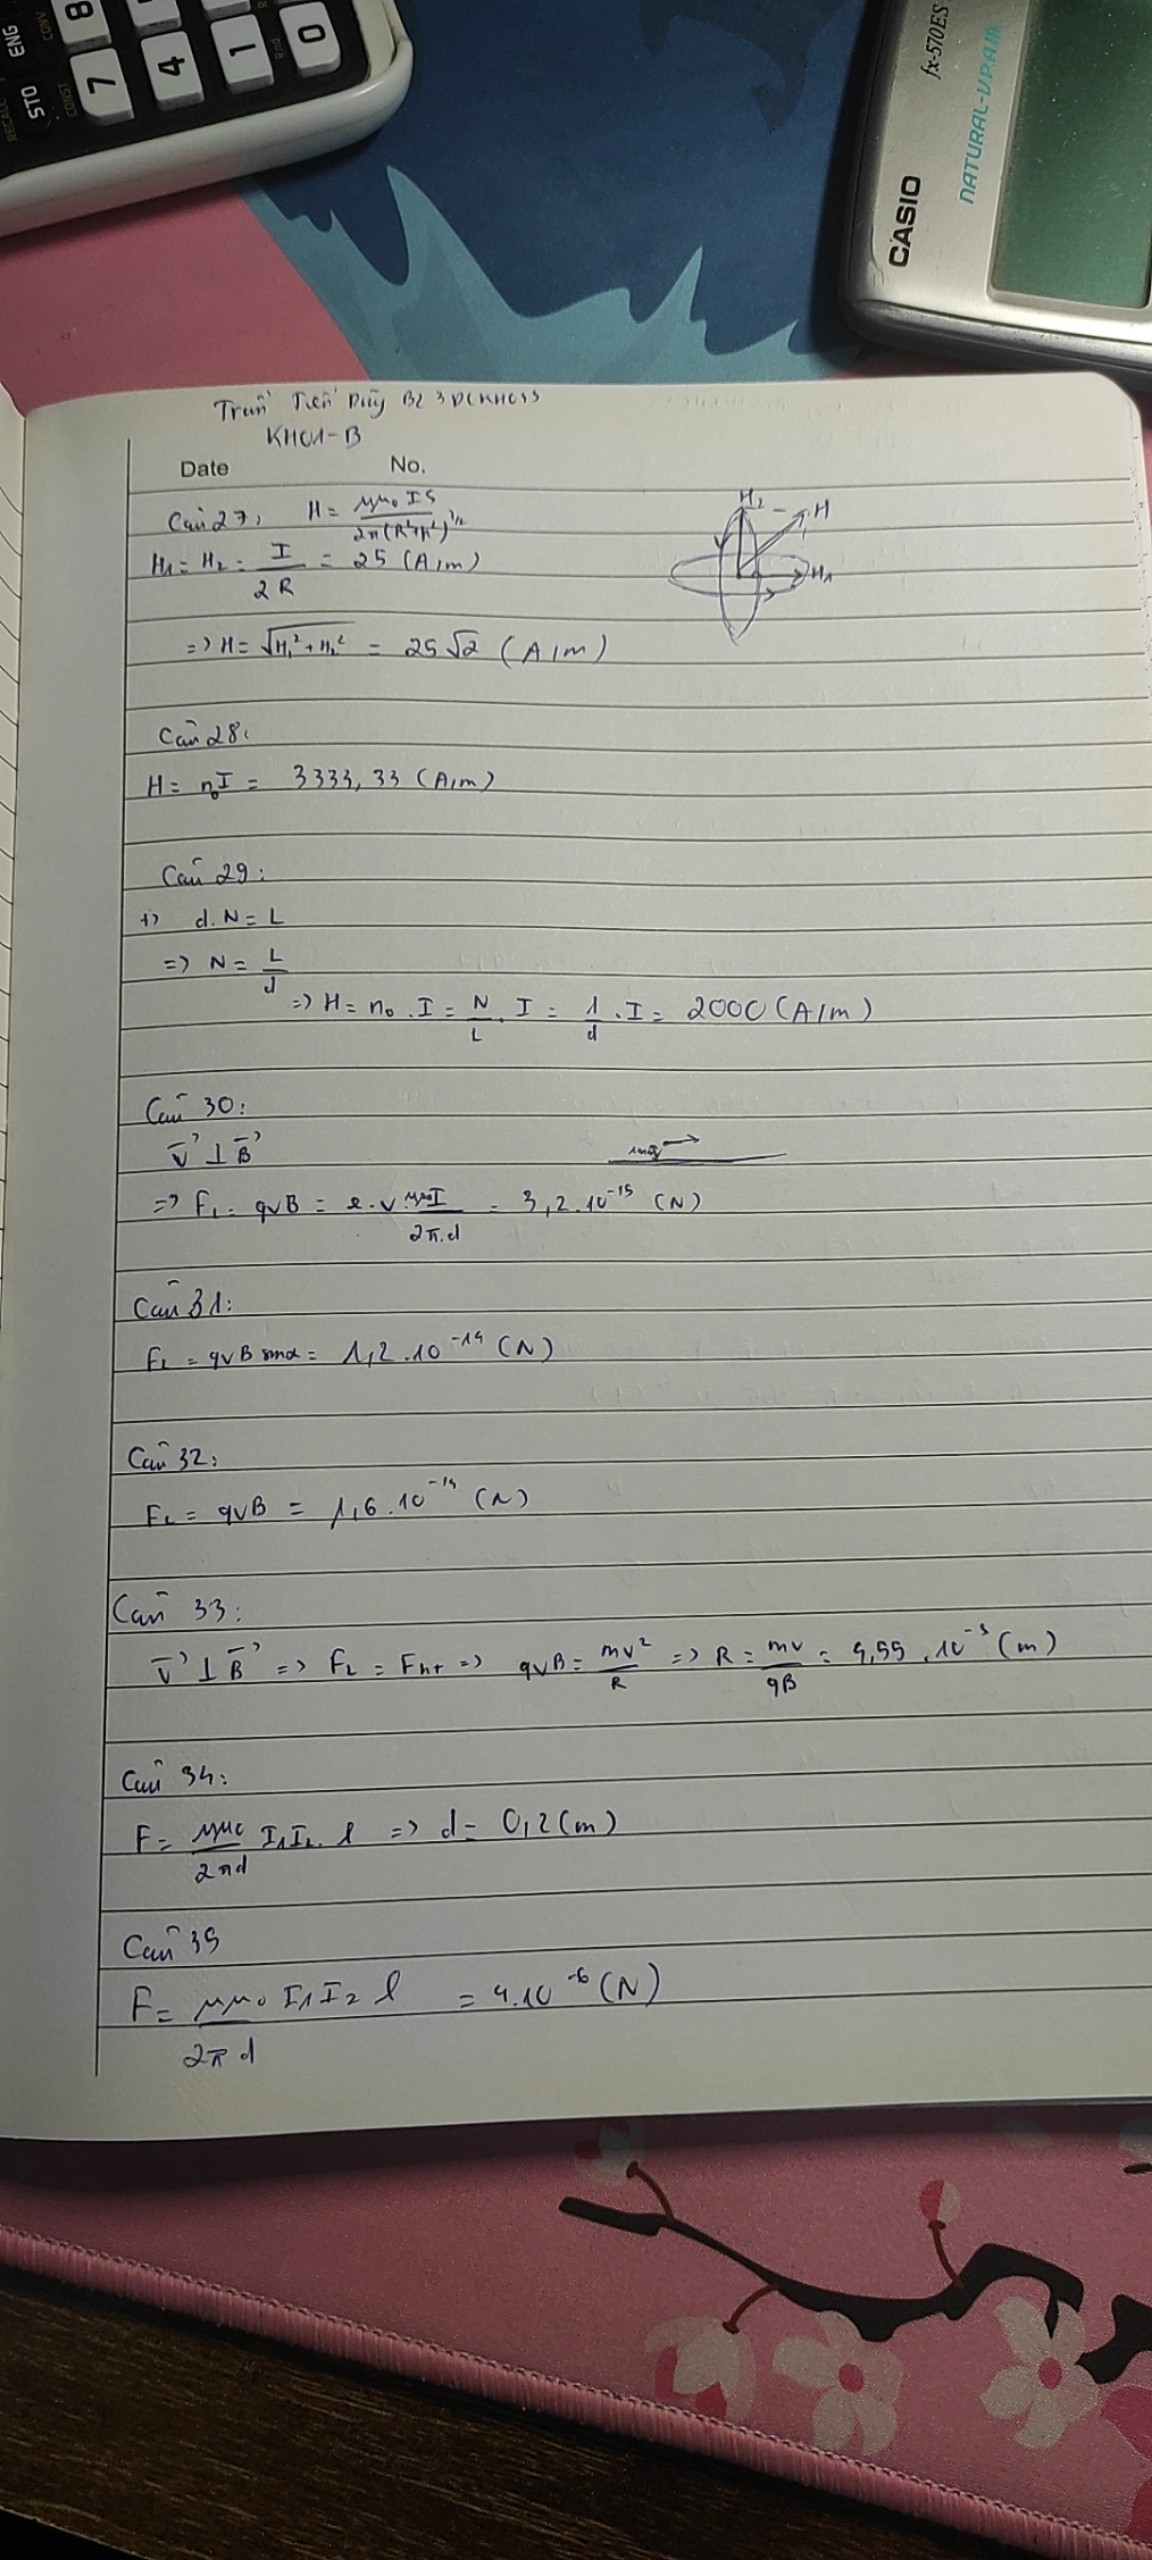 RECALL
STO
ENG
CONST
CONV
7
8
4
1
0
Rnd
fx-570ES
NATURAL-V.P.A.M.
CASIO
Duy
KH01-B
Date No.
Câu 27: H = μμ₀IS / 2π(R²+h²)^3/2
H₁ = H₂ = I / 2R = 25 (A/m)
=> H = √(H₁² + H₂²) = 25√2 (A/m)
H₂ H
H₁
Câu 28:
H = n₀I = 3333,33 (A/m)
Câu 29:
d.N = L
=> N = L / d
=> H = n₀.I = N / L . I = 1 / d . I = 2000 (A/m)
Câu 30:
v⃗ ⊥ B⃗
=> F_L = qvB = e.v μμ₀I / 2π.d = 3,2.10⁻¹⁵ (N)
Câu 31:
F_L = qvB sinα = 1,2.10⁻¹⁴ (N)
Câu 32:
F_L = qvB = 1,6.10⁻¹⁴ (N)
Câu 33:
v⃗ ⊥ B⃗ => F_L = Fht => qvB = mv² / R => R = mv / qB = 4,55.10⁻³ (m)
Câu 34:
F = μμ₀ / 2πd I₁I₂.l => d = 0,2 (m)
Câu 35
F = μμ₀ I₁I₂ l / 2πd = 4.10⁻⁶ (N)